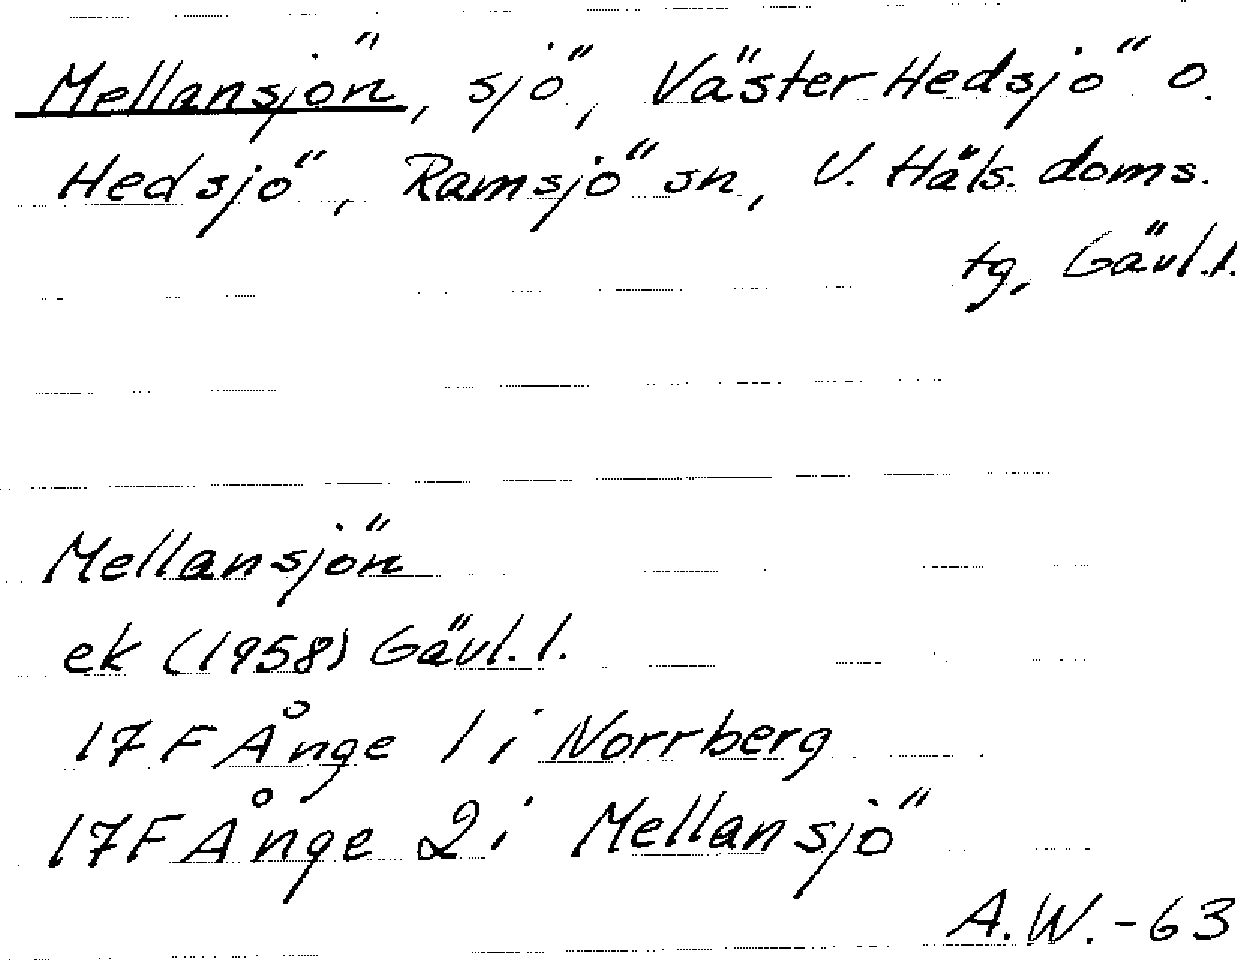 Mellansjön, sjö, Väster Hedsjö o.
Hedsjö, Ramsjö sn, V. Häls. doms.
tg, Gävl. l.
Mellansjön
ek (1958) Gävl. l.
17F Ånge 1 i Norrberg
17F Ånge 2 i Mellansjö
A.W. -63